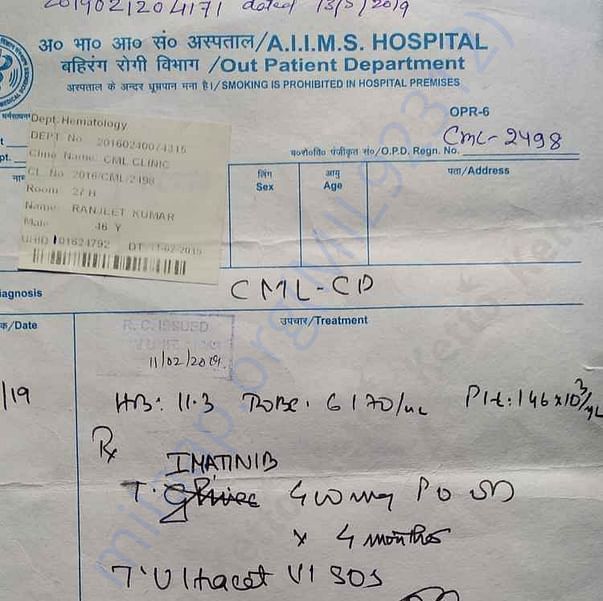 2019021204171 dated 13/5/2019
अ० भा० आ० सं० अस्पताल/A.I.I.M.S. HOSPITAL
बहिरंग रोगी विभाग /Out Patient Department
अस्पताल के अन्दर धूम्रपान मना है।/SMOKING IS PROHIBITED IN HOSPITAL PREMISES
OPR-6
ब०रो०वि० पंजीकृत सं०/O.P.D. Regn. No. CML-2498
Dept. Hematology
DEPT. No. 20160240074315
Clinic Name: CML CLINIC
CL. No 2016/CML/2498
Room 27 H
Name: RANJEET KUMAR
Male 46 Y
UHID 101624792 DT:
लिंग
Sex
आयु
Age
पता/Address
agnosis
CML-CP
क/Date
उपचार/Treatment
R.C. ISSUED
11/02/2019
/19
HB: 11.3 6170/uL Plt: 146x10³/µL
Rx
IMATINIB
T. 400 mg PO OD
x 4 months
T. Ultacet V1 SOS
milaap.org
Ketto